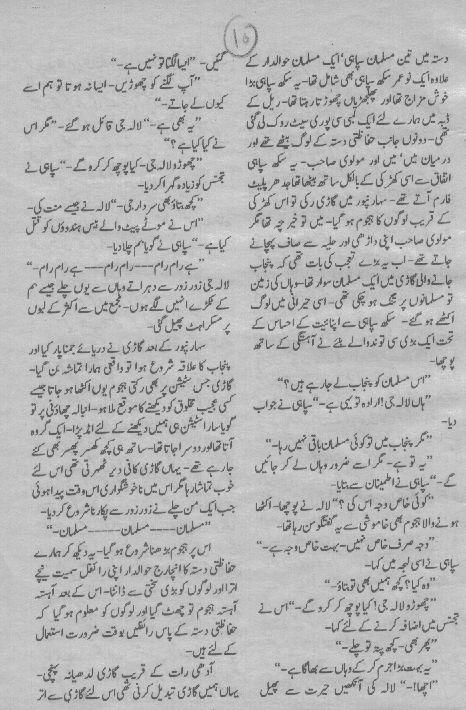 ۱۵
دستہ میں تین مسلمان سپاہی' ایک مسلمان حوالدار کے
علاوہ ایک نو عمر سکھ سپاہی بھی شامل تھا۔ یہ سکھ سپاہی بڑا
خوش مزاج تھا اور پھلجھڑیاں چھوڑتا رہتا تھا۔ ریل کے
ڈبہ میں ہمارے لئے ایک لمبی سی پوری سیٹ روک لی گئی
تھی۔ دونوں جانب حفاظتی دستہ کے لوگ بیٹھے تھے اور
درمیان میں' میں اور مولوی صاحب۔ یہ سکھ سپاہی
اتفاق سے اسی کھڑکی کے بالکل ساتھ بیٹھا تھا جدھر پلیٹ
فارم آتے تھے۔ سہارنپور میں گاڑی رکی تو اس کھڑکی
کے قریب لوگوں کا ہجوم ہو گیا۔ میں تو خیر بچہ تھا مگر
مولوی صاحب اپنی داڑھی اور حلیہ سے صاف پہچانے
جاتے تھے۔ اب یہ بڑے تعجب کی بات تھی کہ پنجاب
جانے والی گاڑی میں ایک مسلمان سوار تھا۔ وہاں کی زمین
تو مسلمانوں پر تنگ ہو چکی تھی۔ اسی حیرانی میں لوگ
اکٹھے ہو گئے۔ سکھ سپاہی سے اپنائیت کے احساس کے
تحت ایک بڑی سی توند والے بنئے نے آہستگی کے ساتھ
پوچھا۔
"اس مسلمان کو پنجاب لے جا رہے ہیں؟"
"ہاں لالہ جی! ارادہ تو یہی ہے۔" سپاہی نے جواب
دیا۔
"مگر پنجاب میں تو کوئی مسلمان باقی نہیں رہا۔"
"یہ تو ہے۔ مگر اسے ضرور وہاں لے کر جائیں
گے۔" سپاہی نے اطمینان سے بتایا۔
"کوئی خاص وجہ اس کی؟" لالہ نے پوچھا۔ اکٹھا
ہونے والا ہجوم بھی خاموشی سے یہ گفتگو سن رہا تھا۔
"وجہ صرف خاص نہیں۔ بہت خاص وجہ ہے۔"
سپاہی نے اسی لہجہ میں کہا۔
"وہ کیا؟ کچھ ہمیں بھی تو بتاؤ۔"
"چھوڑو لالہ جی! کیا پوچھ کر کرو گے۔" اس نے
تجسس میں اضافہ کرنے کے لئے کہا۔
"پھر بھی۔ کچھ پتہ تو چلے۔"
"یہ بہت بڑا جرم کر کے وہاں سے بھاگا ہے۔"
"اچھا!۔" لالہ کی آنکھیں حیرت سے پھیل
گئیں۔ "ایسا لگتا تو نہیں ہے۔"
"آپ لگنے کو چھوڑیں۔ ایسا نہ ہوتا تو ہم اسے
کیوں لے جاتے۔"
"یہ بھی ہے۔" لالہ جی قائل ہو گئے۔ "مگر اس
نے کیا کیا ہے؟"
"چھوڑو لالہ جی۔ کیا پوچھ کر کرو گے۔" سپاہی نے
تجسس کو زیادہ گہرا کر دیا۔
"کچھ بتاؤ بھی سردار جی۔" لالہ نے جیسے منت کی۔
"اس نے موٹے پیٹ والے بیس ہندوؤں کو قتل
کیا ہے۔" سپاہی نے گویا بم چلا دیا۔
"ہے رام رام۔۔۔۔ رام رام۔۔۔۔ ہے رام رام۔"
لالہ جی زور زور سے دہراتے وہاں سے یوں چلے جیسے بم
کے ٹکڑے انہیں لگے ہوں۔ مجمع میں سے اکثر کے لبوں
پر مسکراہٹ پھیل گئی۔
سہارنپور کے بعد گاڑی نے دریائے جمنا پار کیا اور
پنجاب کا علاقہ شروع ہوا تو واقعی ہمارا تماشہ بن گیا۔
گاڑی جس سٹیشن پر بھی رکتی ہجوم یوں اکٹھا ہو جاتا جیسے
کسی عجیب مخلوق کو دیکھنے کا موقع ملا ہو۔ انبالہ چھاؤنی پر تو
گویا سارا سٹیشن ہی ہمیں دیکھنے کے لئے امڈ پڑا۔ ایک گروہ
آتا تھا اور دوسرا جاتا تھا۔ ساتھ ہی کچھ کھسر پھسر بھی کئے
جا رہے تھے۔ یہاں گاڑی کافی دیر ٹھہرنی تھی اس لئے
خوب تماشا رہا مگر اس میں ناخوشگواری اس وقت پیدا ہوئی
جب ایک من چلے نے زور زور سے پکارنا شروع کر دیا۔
"مسلمان۔۔۔۔ مسلمان۔۔۔۔ مسلمان۔"
اس پر ہجوم بڑھنا شروع ہو گیا۔ یہ دیکھ کر ہمارے
حفاظتی دستہ کا انچارج حوالدار اپنی رائفل سمیت نیچے
اترا اور لوگوں کو بڑی سختی سے ڈانٹا۔ اس کے بعد آہستہ
آہستہ ہجوم تو چھٹ گیا اور لوگوں کو معلوم ہو گیا کہ
حفاظتی دستہ کے پاس رائفلیں بوقت ضرورت استعمال
کے لئے ہیں۔
آدھی رات کے قریب گاڑی لدھیانہ پہنچی۔
یہاں ہمیں گاڑی تبدیل کرنی تھی اس لئے گاڑی سے اتر